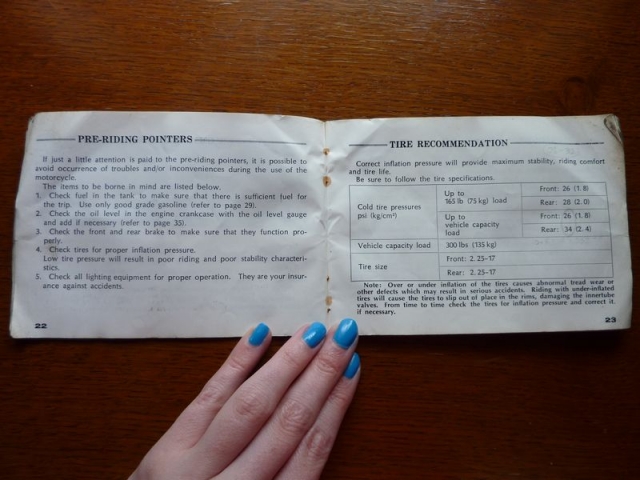 PRE-RIDING POINTERS
If just a little attention is paid to the pre-riding pointers, it is possible to
avoid occurrence of troubles and/or inconveniences during the use of the
motorcycle.
The items to be borne in mind are listed below.
1. Check fuel in the tank to make sure that there is sufficient fuel for
the trip. Use only good grade gasoline (refer to page 29).
2. Check the oil level in the engine crankcase with the oil level gauge
and add if necessary (refer to page 35).
3. Check the front and rear brake to make sure that they function pro-
perly.
4. Check tires for proper inflation pressure.
Low tire pressure will result in poor riding and poor stability characteri-
stics.
5. Check all lighting equipment for proper operation. They are your insur-
ance against accidents.
22
TIRE RECOMMENDATION
Correct inflation pressure will provide maximum stability, riding comfort
and tire life.
Be sure to follow the tire specifications.
Cold tire pressures
psi (kg/cm²)
Up to
165 lb (75 kg) load
Front: 26 (1.8)
Rear: 28 (2.0)
Up to
vehicle capacity
load
Front: 26 (1.8)
Rear: 34 (2.4)
Vehicle capacity load 300 lbs (135 kg)
Tire size
Front: 2.25-17
Rear: 2.25-17
Note: Over or under inflation of the tires causes abnormal tread wear or
other defects which may result in serious accidents. Riding with under-inflated
tires will cause the tires to slip out of place in the rims, damaging the innertube
valves. From time to time check the tires for inflation pressure and correct it
if necessary.
23